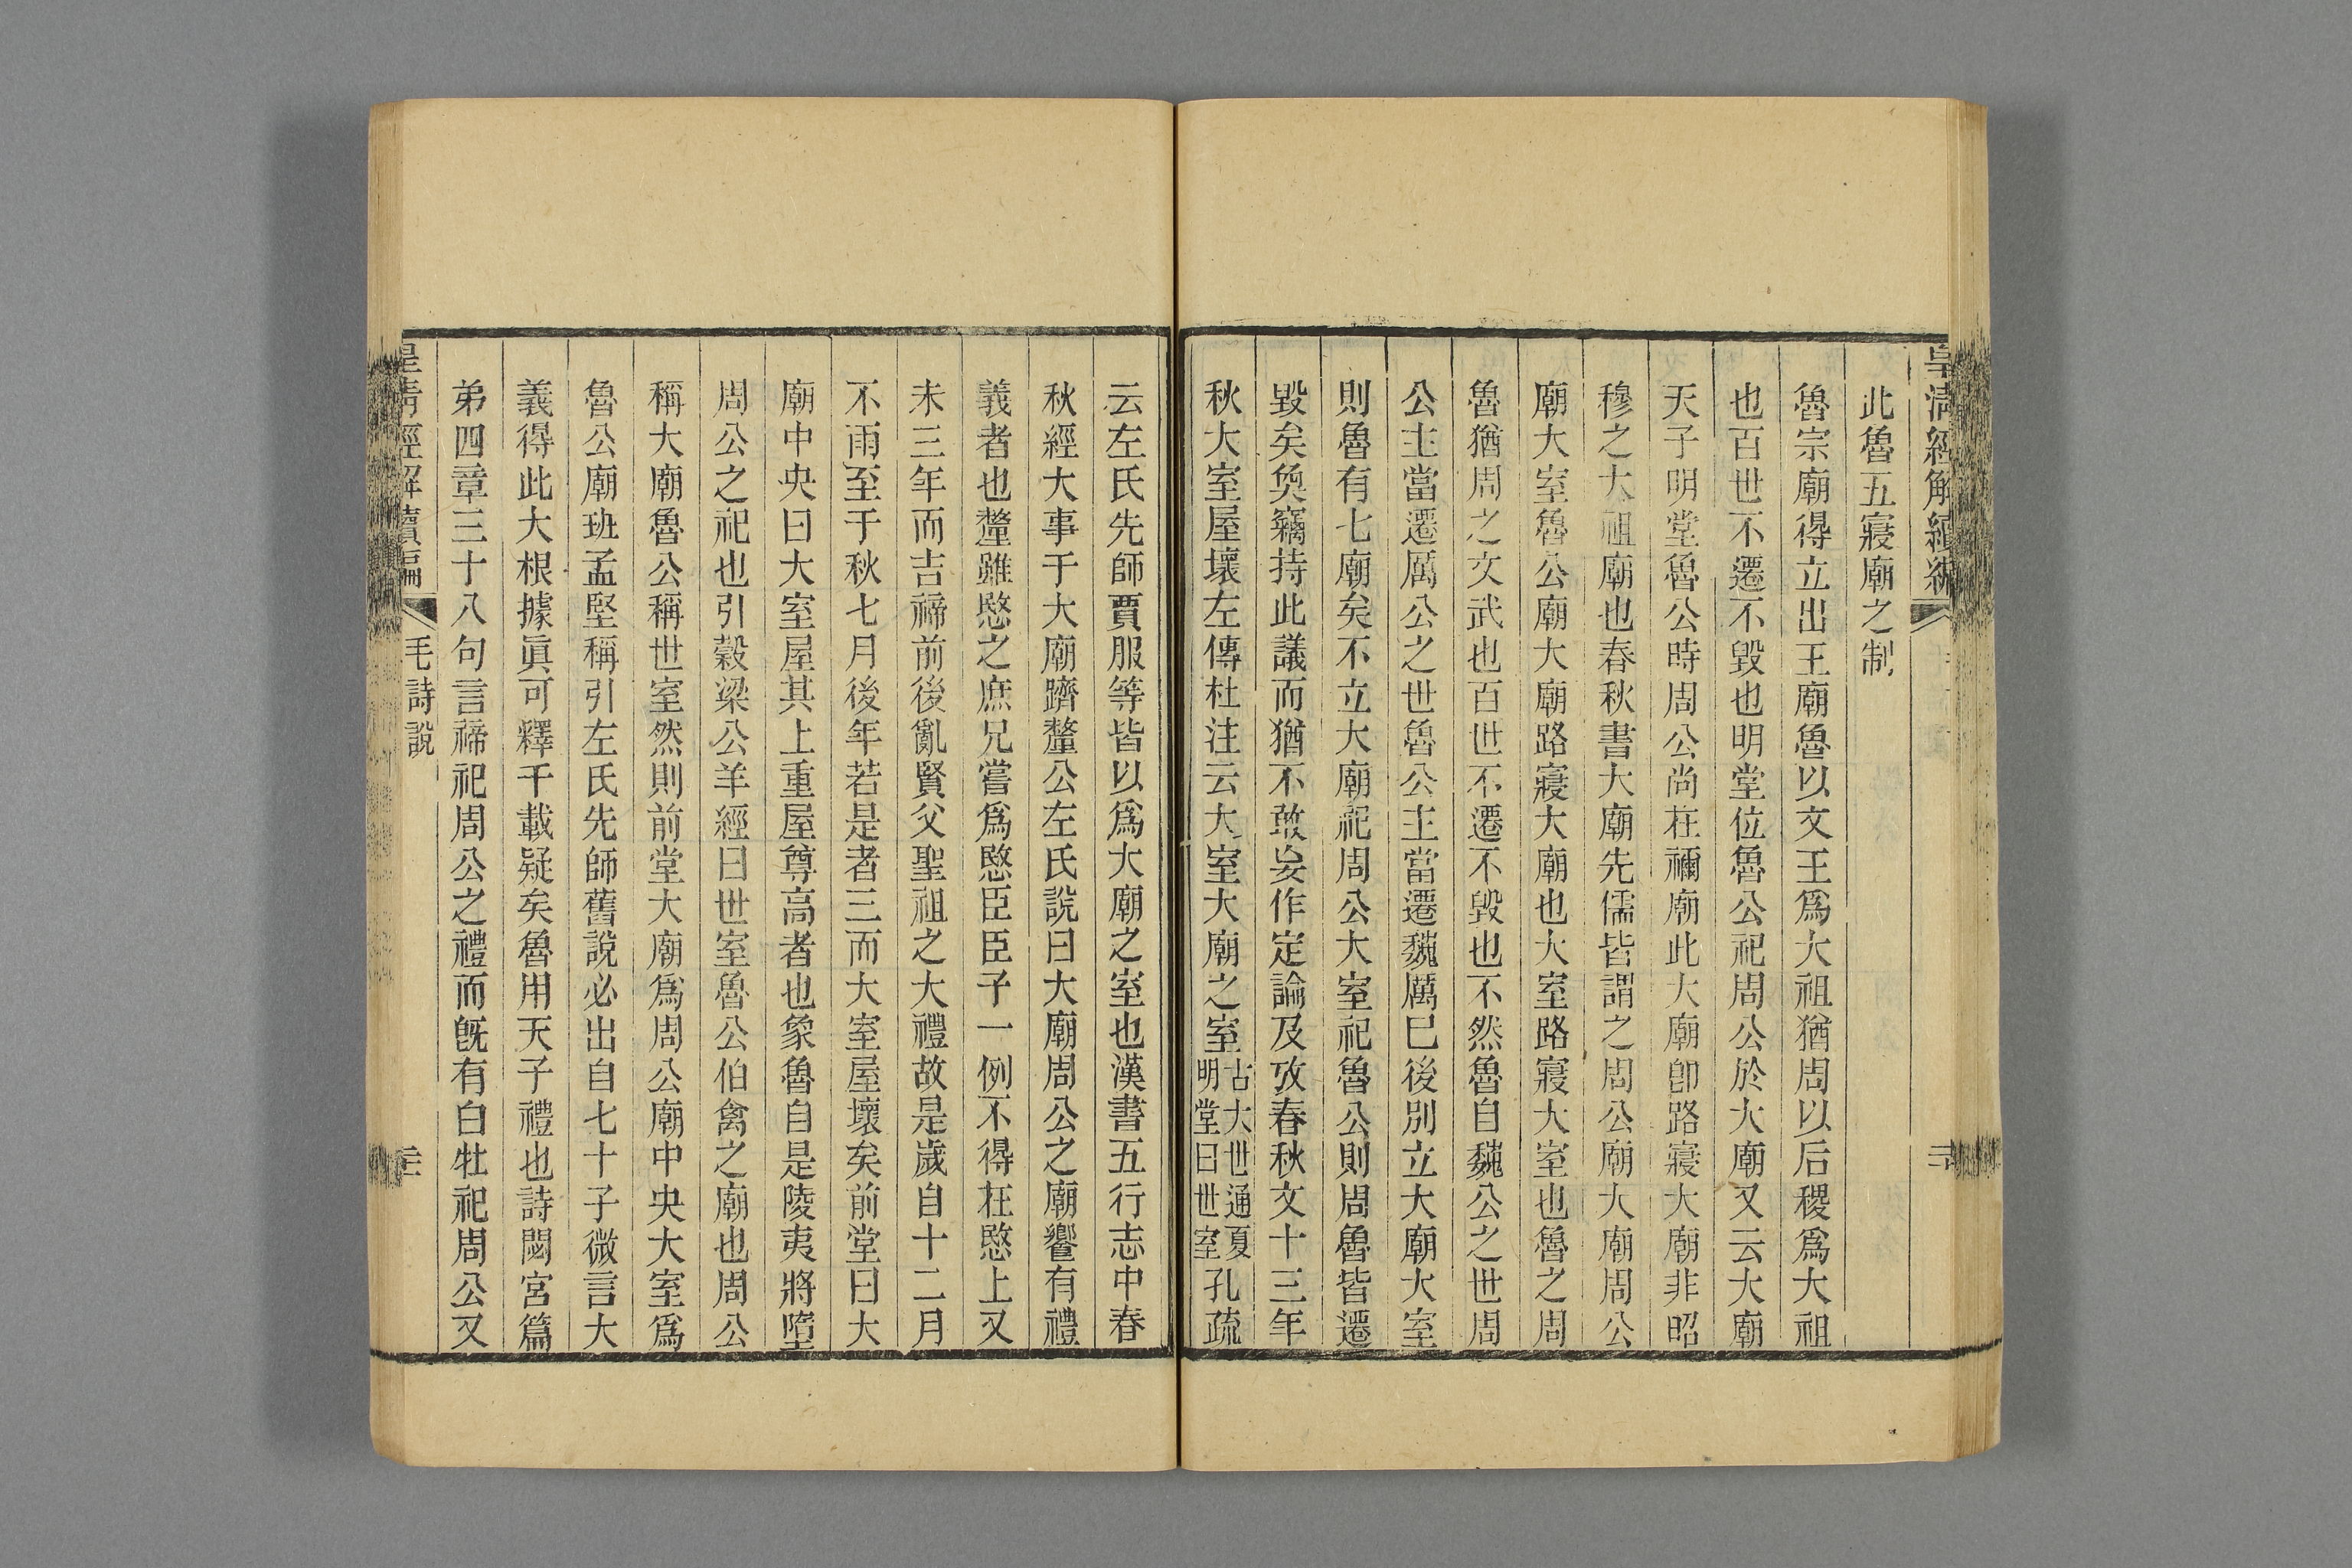 皇清經解續編
此魯五寢廟之制
魯宗廟得立出王廟魯以文王爲大祖猶周以后稷爲大祖
也百世不遷不毀也明堂位魯公祀周公於大廟又云大廟
天子明堂魯公時周公尚在禰廟此大廟卽路寢大廟非昭
穆之大祖廟也春秋書大廟先儒皆謂之周公廟大廟周公
廟大室魯公廟大廟路寢大廟也大室路寢大室也魯之周
魯猶周之文武也百世不遷不毀也不然魯自魏公之世周
公主當遷厲公之世魯公主當遷魏厲巳後別立大廟大室
則魯有七廟矣不立大廟祀周公大室祀魯公則周魯皆遷
毀矣奐竊持此議而猶不敢妄作定論及攷春秋文十三年
秋大室屋壞左傳杜注云大室大廟之室古大世通夏明堂曰世室孔疏
云左氏先師賈服等皆以爲大廟之室也漢書五行志中春
秋經大事于大廟躋釐公左氏說曰大廟周公之廟饗有禮
義者也釐雖愍之庶兄嘗爲愍臣臣子一例不得在愍上又
未三年而吉禘前後亂賢父聖祖之大禮故是歲自十二月
不雨至于秋七月後年若是者三而大室屋壞矣前堂曰大
廟中央曰大室屋其上重屋尊高者也象魯自是陵夷將墮
周公之祀也引穀梁公羊經曰世室魯公伯禽之廟也周公
稱大廟魯公稱世室然則前堂大廟爲周公廟中央大室爲
魯公廟班孟堅稱引左氏先師舊說必出自七十子微言大
義得此大根據眞可釋千載疑矣魯用天子禮也詩閟宮篇
弟四章三十八句言禘祀周公之禮而旣有白牡祀周公又
皇清經解續編 毛詩說